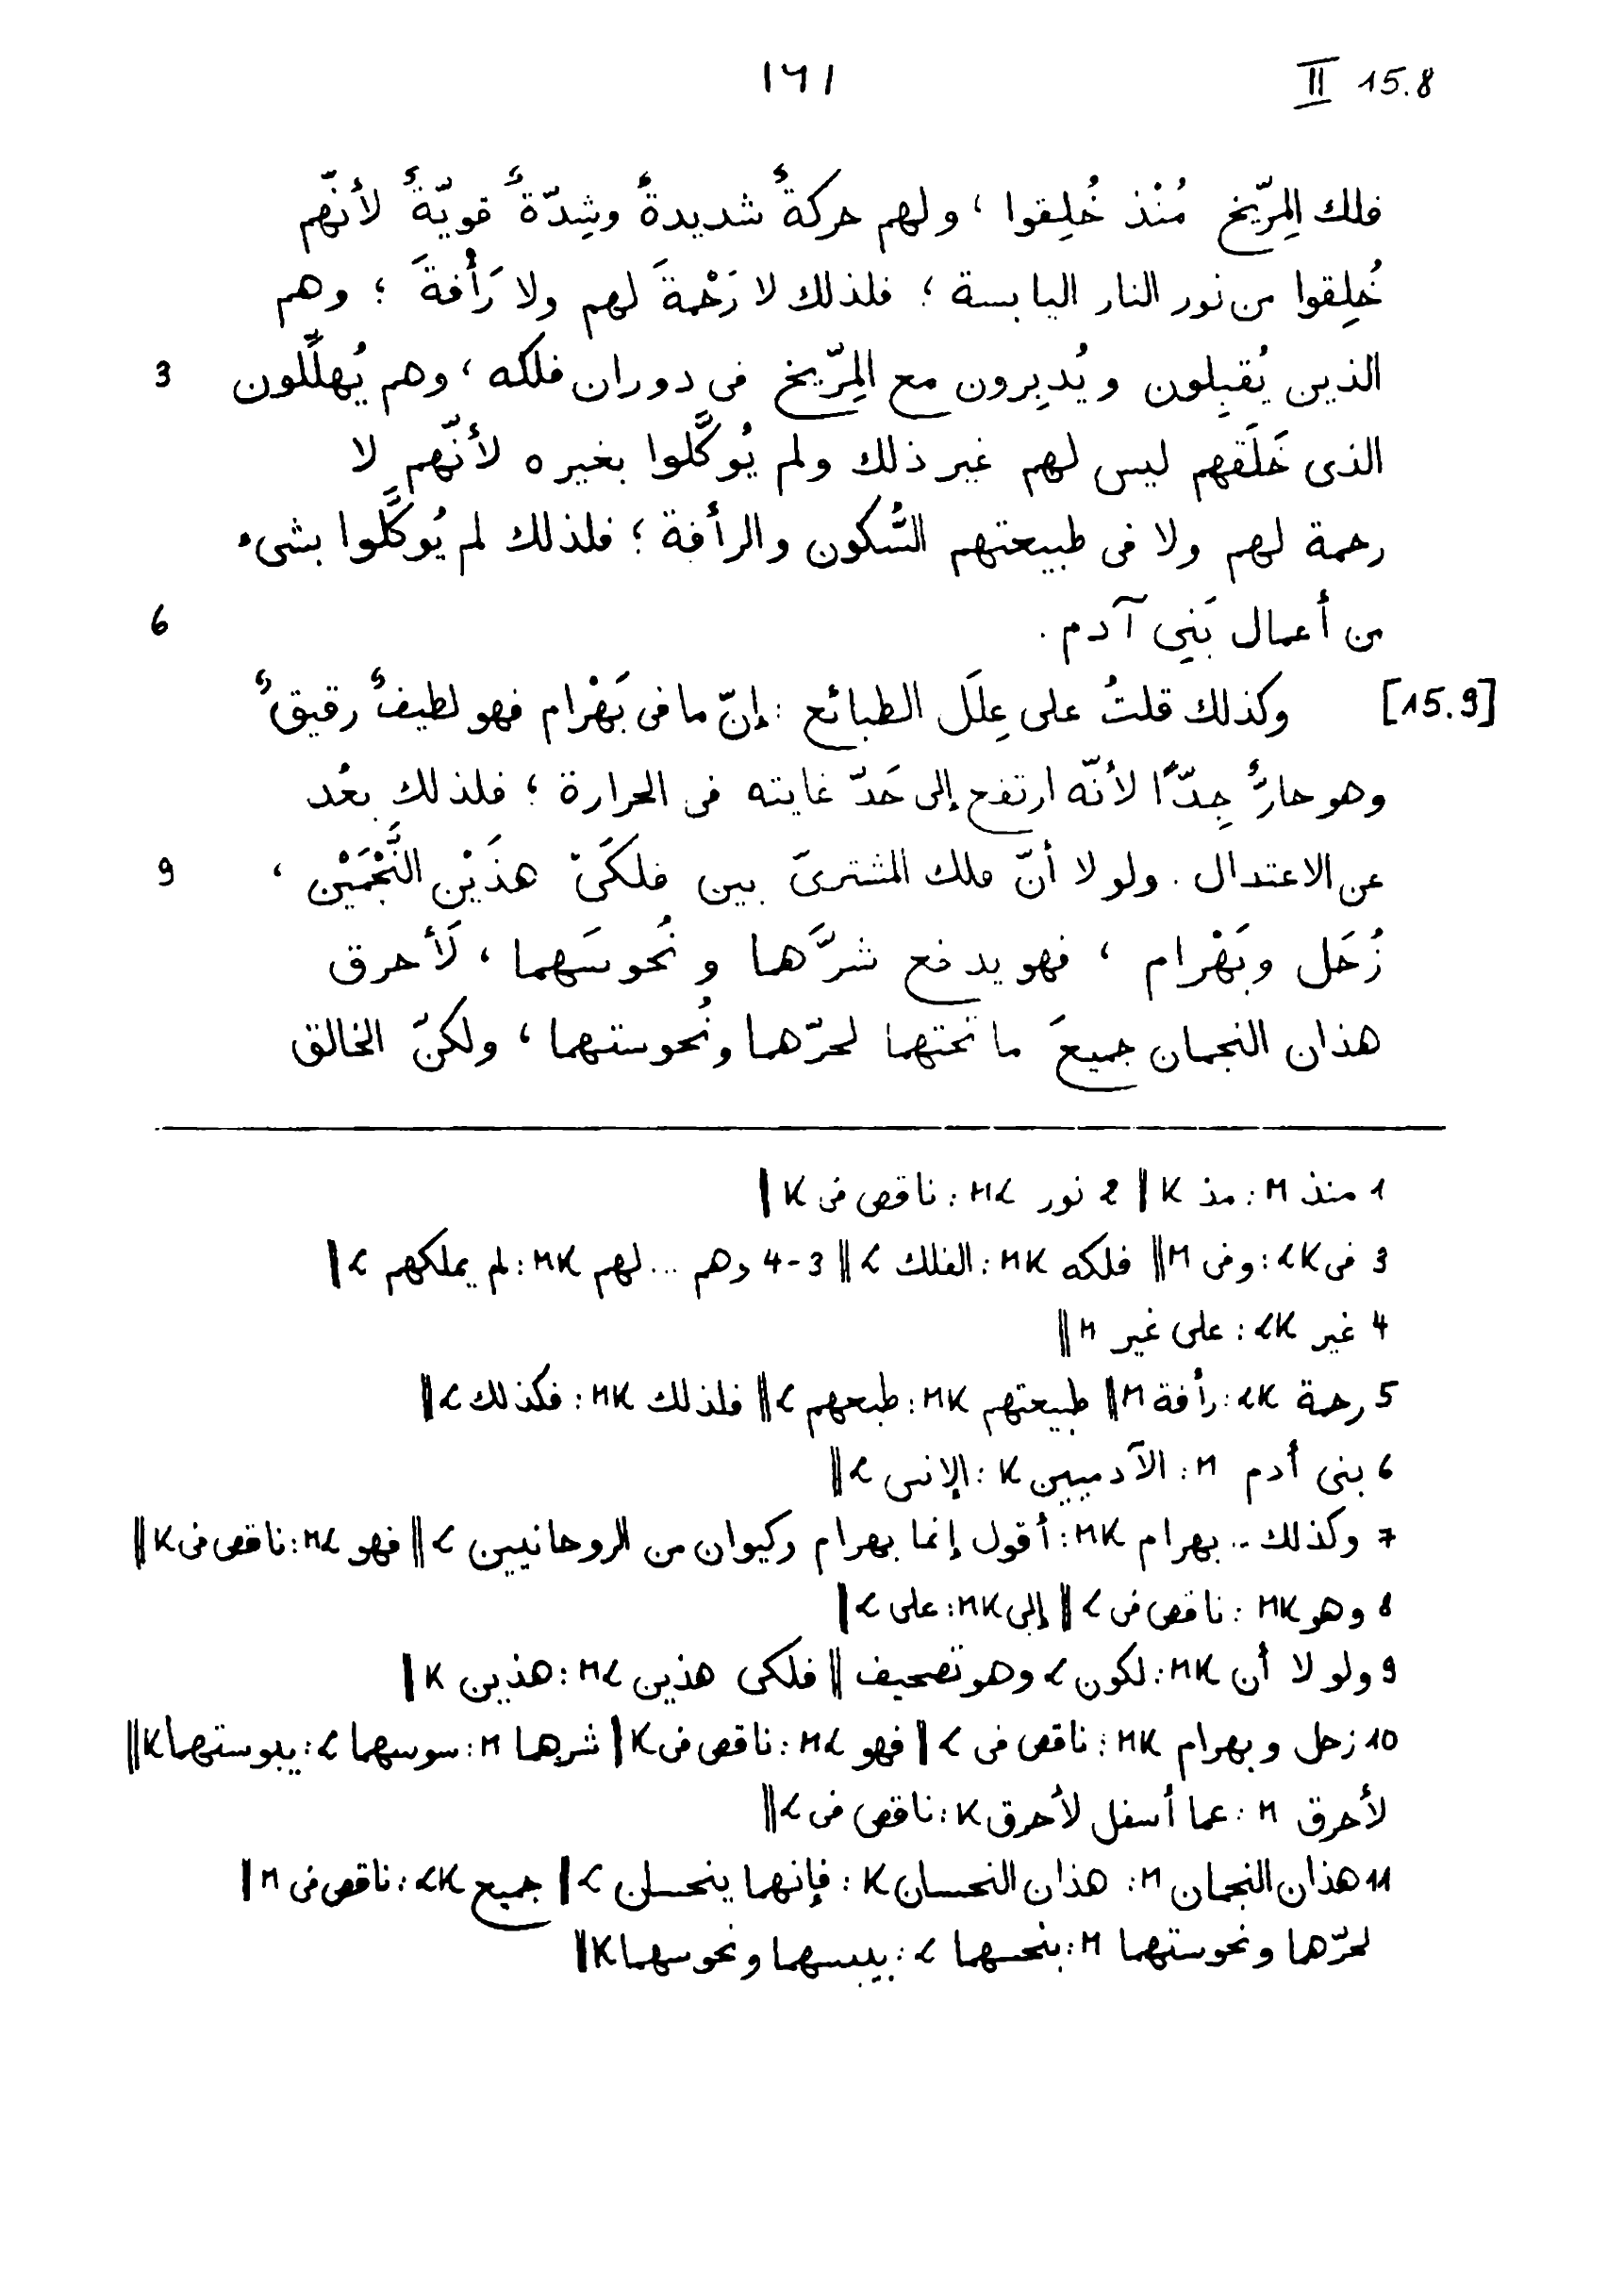 ١٦١ II 15.8
فلك المِرّيخ مُنْذ خُلِقوا ، ولهم حركةٌ شديدةٌ وشِدّةٌ قويّةٌ لأنّهم
خُلِقوا من نور النار اليابسة ؛ فلذلك لا رَحْمةَ لهم ولا رَأْفةَ ؛ وهم
الذين يُقبِلون ويُدبِرون مع المِرّيخ فى دوران فلكه ، وهم يُهلِّلون 3
الذى خَلَقهم ليس لهم غير ذلك ولم يُوكَّلوا بغيره لأنّهم لا
رحمة لهم ولا فى طبيعتهم السُّكون والرأفة ؛ فلذلك لم يُوكَّلوا بشىء
من أعمال بَنِي آدم . 6
[15.9] وكذلك قلتُ على عِلَل الطبائع : إنّ ما فى بَهْرام فهو لطيفٌ رقيقٌ
وهو حارٌّ جِدًّا لأنّه ارتفع إلى حَدّ غايته فى الحرارة ؛ فلذلك بعُد
عن الاعتدال . ولولا أنّ فلك المشترىَ بين فلكَىْ هذَيْن النَّجْمَيْن ، 9
زُحَل وبَهْرام ، فهو يدفع شرَّهما ونُحوسَهما ، لَأحرق
هذان النجمان جميعَ ما تحتهما لحرّهما ونُحوستهما ، ولكنّ الخالق
1 منذ M : مذ K || 2 نور ML : ناقص فى K ||
3 فى LK : وفى M || فلكه MK : الفلك L || 3-4 وهم ... لهم MK : لم يملكهم L ||
4 غير LK : على غير M ||
5 رحمة LK : رأفة M || طبيعتهم MK : طبعهم L || فلذلك MK : فكذلك L ||
6 بنى أدم M : الآدميين K : الإنس L ||
7 وكذلك .. بهرام MK : أقول إنما بهرام وكيوان من الروحانيين L || فهو ML : ناقص فى K ||
8 وهو MK : ناقص فى L || إلى MK : على L ||
9 ولولا أن MK : لكون L وهو تصحيف || فلكى هذين ML : هذين K ||
10 زحل وبهرام MK : ناقص فى L || فهو ML : ناقص فى K || شرهما M : سوسهما L : يبوستهما K ||
لأحرق M : عما أسفل لأحرق K : ناقص فى L ||
11 هذان النجمان M : هذان النحسان K : فإنهما ينحسان L || جميع LK : ناقص فى M ||
لحرّهما ونحوستهما M : بنحسهما L : بيبسهما ونحوسهما K ||